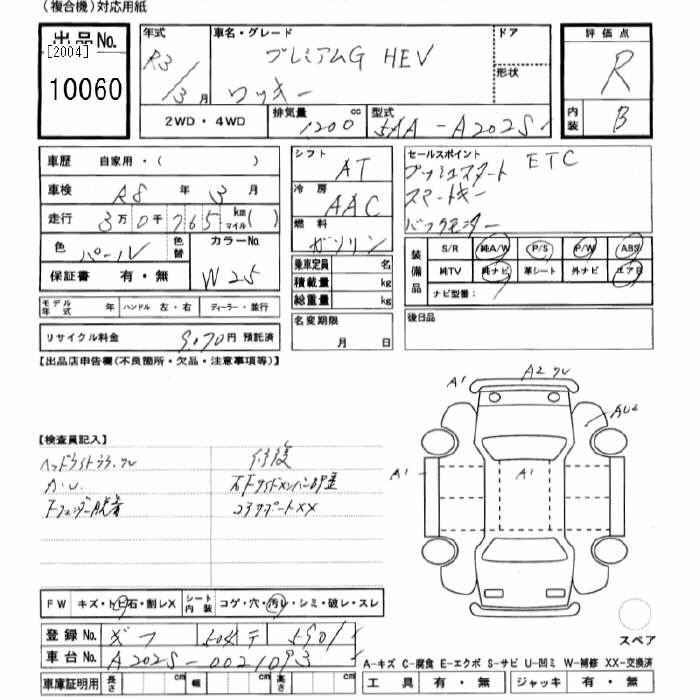 (複合機)対応用紙
出品No.
[2004]
10060
年式
R3
3月
車名・グレード
プレミアムG HEV
ロッキー
ドア
形状
評価点
R
内装
B
2WD・4WD
排気量 1200 cc
型式 5AA-A202S
車歴 自家用・( )
車検 R8 年 3 月
走行 3万0千765 km マイル( )
色 パール
色替
カラーNo. W25
保証書 有・無
モデル年式 年 ハンドル 左・右 ディーラー・並行
リサイクル料金 9,070円 預託済
シフト AT
冷房 AAC
燃料 ガソリン
乗車定員 名
積載量 kg
総重量 kg
名変期限
月 日
セールスポイント
プッシュスタート ETC
スマートキー
バックモニター
装備品
S/R 純A/W P/S P/W ABS
純TV 純ナビ 革シート 外ナビ エアB
ナビ型番:
後日品
【出品店申告欄(不良箇所・欠品・注意事項等)】
【検査員記入】
修復
A1
A2
AU2
A1
A1
FW キズ・トビ石・割レX
シート内装 コゲ・穴・汚レ・シミ・破レ・スレ
登録No.
車台No. A202S-0021093
車庫証明用 長さ cm 幅 cm 高さ cm
スペア
A-キズ C-腐食 E-エクボ S-サビ U-凹ミ W-補修 XX-交換済
工具 有・無 ジャッキ 有・無